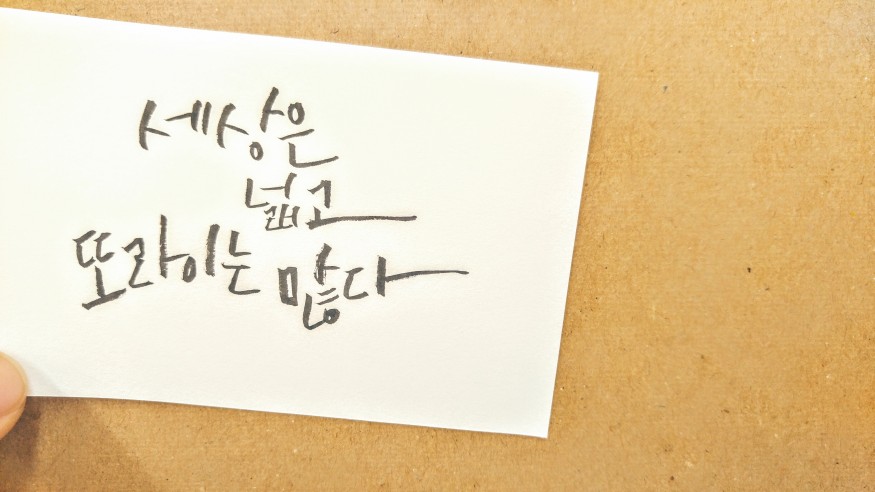 세상은
넓고
또라이는 많다